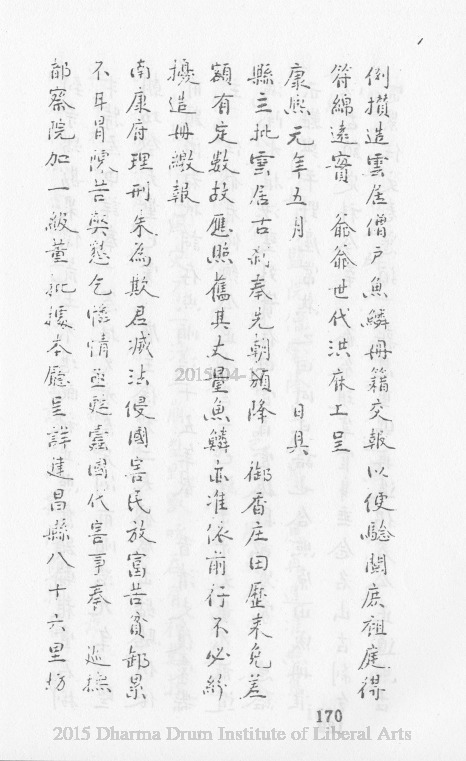 例攢造雲居僧戶魚鱗冊籍交報以便驗關庶祖庭得
符綿遠實 爺爺世代洪庥工呈
康熙元年五月 日具
縣主批雲居古剎奉先朝頒降 御香庄田歷來免差
額有定數故應照舊其丈量魚鱗亦准依前行不必紛
擾造冊繳報
南康府理刑朱為欺君滅法侵國害民放富苦貧卸累
不耳冒陳苦與懇乞憐情亟甦蠹國代害事奉 巡撫
都察院加一級董批據本廳呈詳建昌縣八十六里坊
170
2015-04-17
2015 Dharma Drum Institute of Liberal Arts